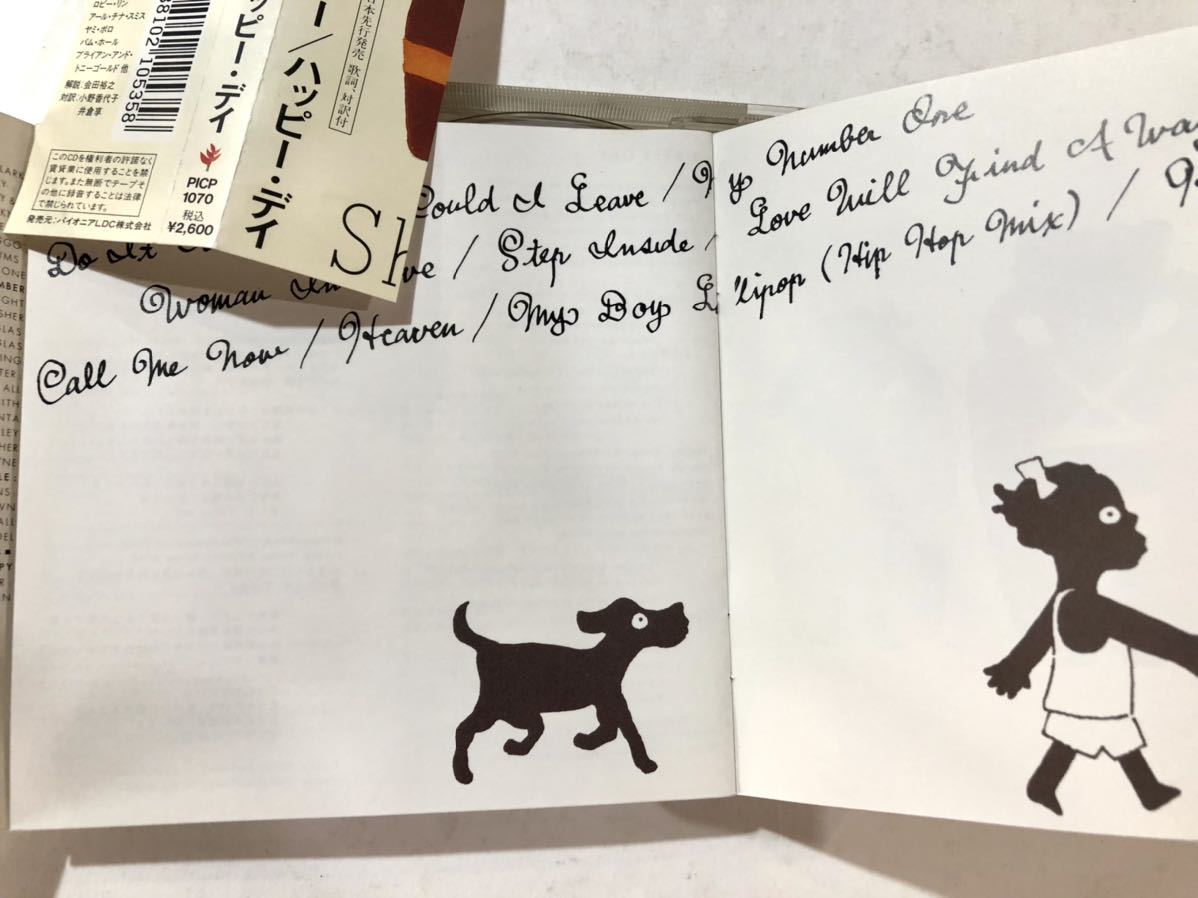 ロビー・リン
アール・チナ・スミス
ヤミ・ボロ
パム・ホール
ブライアン・アンド・
トニーゴールド 他
解説:会田裕之
対訳:小野香代子
井倉享
88102 105358
このCDを権利者の許諾なく
賃貸業に使用することを禁
じます。また無断でテープそ
の他に録音することは法律
で禁じられています。
発売元:パイオニアLDC株式会社
ッピー・デイ
PICP
1070
税込
¥2,600
ー/ハッピー・デイ
日本先行発売 歌詞、対訳付
SH
Could I Leave / My Number One
Do It
Love Will Find A Way
Woman In Love / Step Inside /
Call Me Now / Heaven / My Boy Lollipop (Hip Hop Mix) /
LARK
GGO
UMS
ONE
MBER
IGHT
SHER
GLAS
ING
TER
ALL
ITH
NTA
LEY
HER
YNE
LE:
NS
WN
ALL
DEL
PY
ER
N